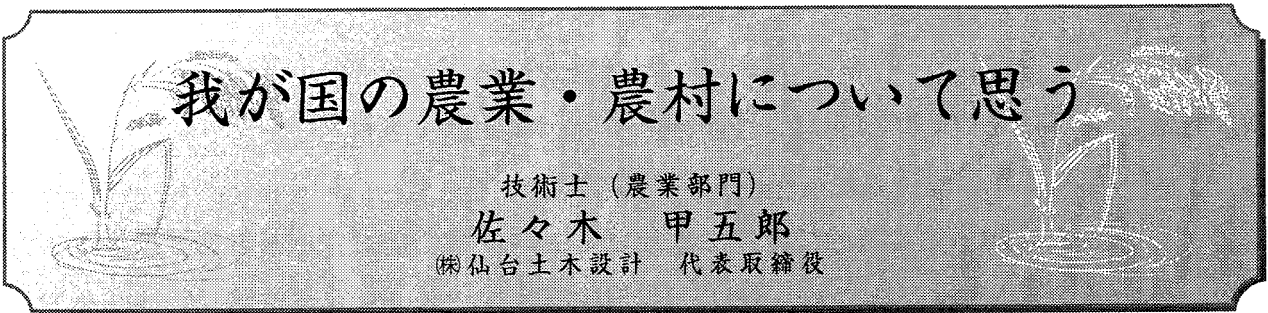 我が国の農業・農村について思う
技術士（農業部門）
佐々木　甲五郎
㈱仙台土木設計　代表取締役